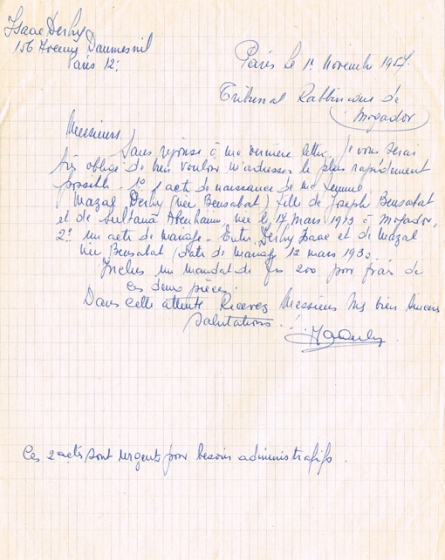 Isaac Derhy
156 Avenue Daumesnil
Paris 12.
Paris le 1er Novembre 1957.
Tribunal Rabbinique de
Mogador
Messieurs
Sans réponse à ma dernière lettre, je vous serai
très obligé de bien vouloir m'adresser le plus rapidement
possible. 1° l'acte de naissance de ma femme
Mazal Derhy (née Bensabat) fille de Joseph Bensabat
et de Sultana née le 17 mars 1913 à Mogador,
2° un acte de mariage. Entre Derhy Isaac et de Mazal
née Bensabat date de mariage 12 mars 193
Inclus un mandat de 200 pour frais de
ces deux pièces.
Dans cette attente Recevez Messieurs Mes bien sincères
Salutations
Ces 2 actes sont urgents pour besoins administratifs.